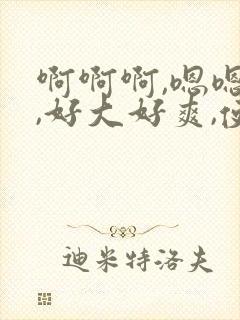 啊啊啊,嗯嗯
,好大好爽,
迪米特洛夫